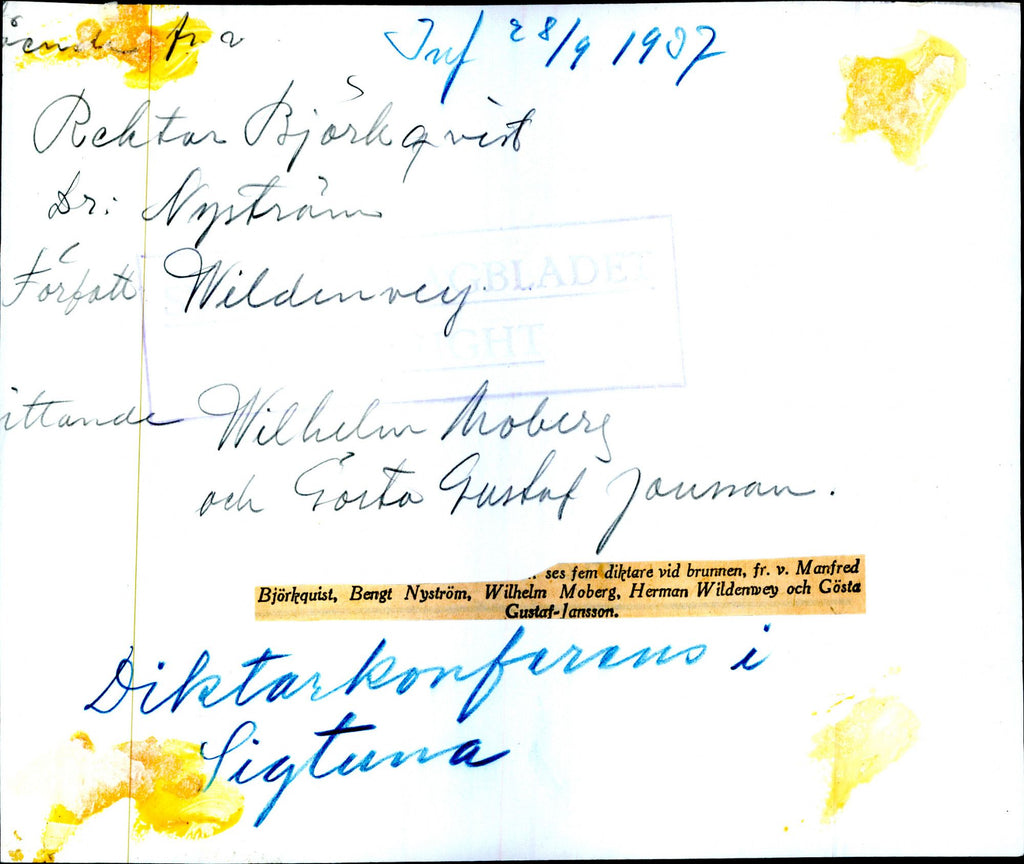 fr. v
Inf 28/9 1937
Rektor Björkqvist
Dr: Nyström
Författ Wildenvey.
GBLADET
GHT
ittande Wilhelm Moberg
och Gösta Gustaf Jansson.
ses fem diktare vid brunnen, fr. v. Manfred
Björkquist, Bengt Nyström, Wilhelm Moberg, Herman Wildenwey och Gösta
Gustaf-Jansson.
Diktarkonferens i
Sigtuna